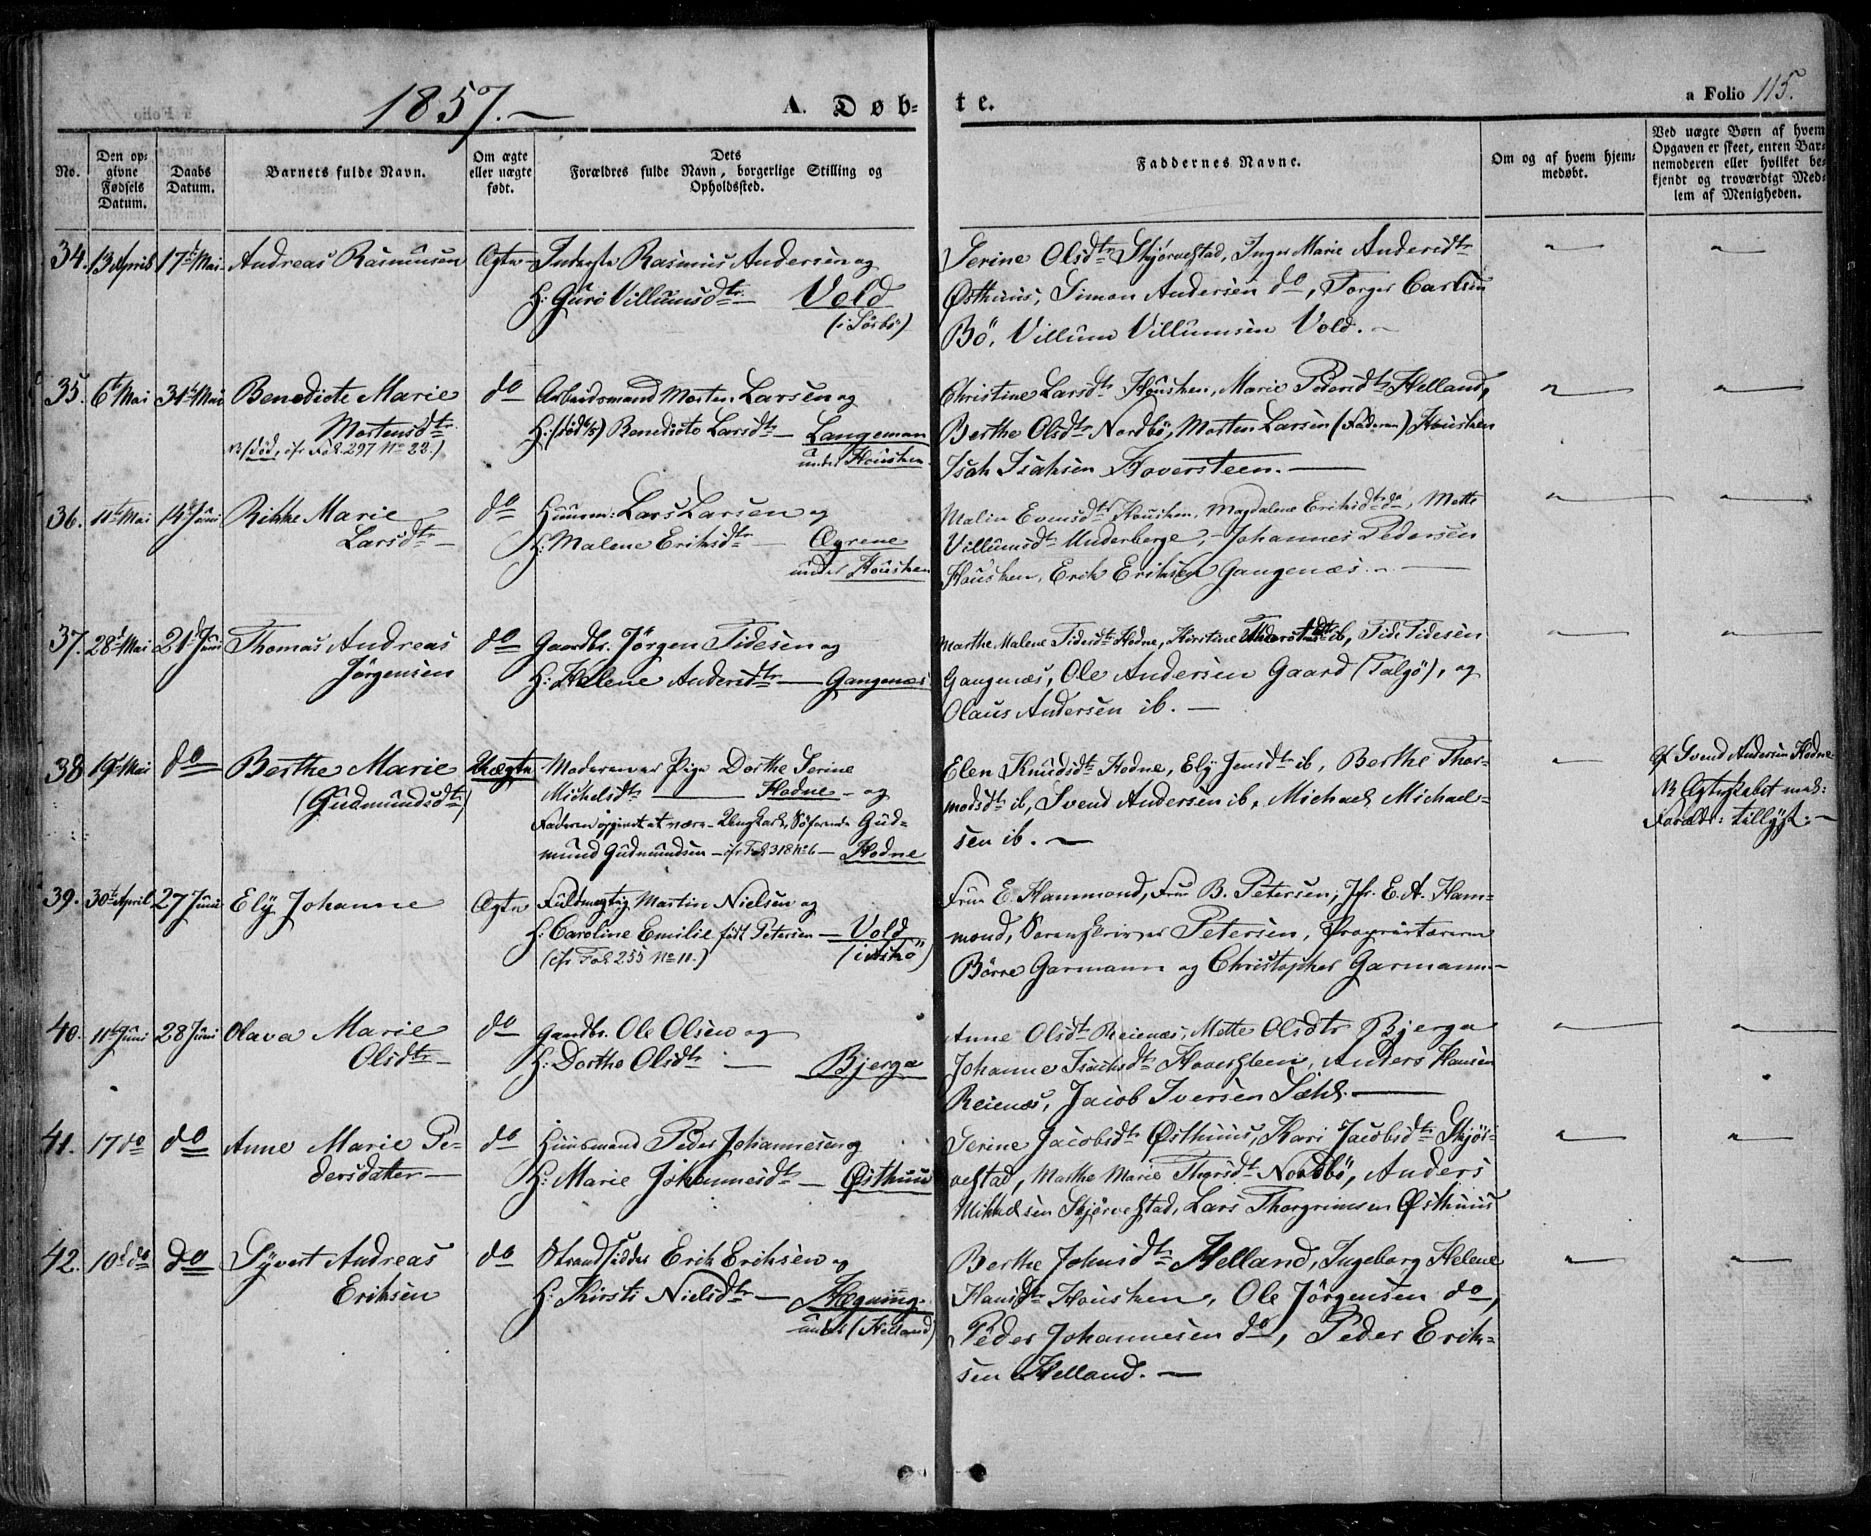 1857.
A. Døb-
te.
a Folio 115.
No.
Den op-
givne
Fødsels
Datum.
Daabs
Datum.
Barnets fulde Navn.
Om ægte
eller uægte
født.
Dets
Forældres fulde Navn, borgerlige Stilling og
Opholdssted.
Faddernes Navne.
Om og af hvem hjem-
medøbt.
Ved uægte Børn af hvem
Opgaven er skeet, enten Bar-
nemoderen eller hvilket be-
kjendt og troværdigt Med-
lem af Menigheden.
34. 13 April 17d Mai Andreas Rasmusen Ægte Inderste Rasmus Andersen og
H: Guro Villumsdtr. Vold
(i Sörbö)
Serine Olsdtr Skjørvestad, Inger Marie Andersdtr
Østhuus, Simon Andersen do, Torger Carlsen
Bö, Villum Villumsen Vold.
35. 6t Mai 31t Mai Benedicte Marie do Arbeidsmand Morten Larsen og
Mortensdtr
NB (död, cfr Fol. 297 No 22.)
H: (död) Benedicte Larsdtr Langeman
under Housken
Christine Larsdtr Housken, Marie Pedersdtr Helland,
Berthe Olsdtr Nordbö, Morten Larsen (Faderen) Housken
Isak Isaksen Hoversteen.
36. 11t Mai 14d Juni Rikke Marie do Huusm: Lars Larsen og
Larsdtr
H: Malene Eriksdtr Øyrene
under Housken
Malin Evensdtr Housken, Magdalene Eriksdtr do, Mette
Villumsdtr Underberge, Johannes Pedersen
Housken, Erik Eriksen Gangenæs.
37. 28d Mai 21d Juni Thomas Andreas do Gaardbr. Jörgen Tidesen og
Jörgensen
H: Helene Andersdtr Gangenæs
Marthe Malene Tidesdtr Hodne, Kirstine ib, Tide Tidesen
Gangenæs, Ole Andersen Gaard (Talgö), og
Olaus Andersen ib.
38 19d Mai do Berthe Marie Uægte Moderen er Pige Dorthe Serine
(Gudmundsdtr)
Michelsdtr Hodne og
Faderen opgivet at være Ungkarl, Söfarende Gud-
mund Gudmundsen cfr Fol 318 No 6 Hodne
Elen Knudsdtr Hodne, Ely Jensdtr ib, Berthe Thor-
modsdtr ib, Svend Andersen ib, Michael Michael-
sen ib.
Af Svend Andersen Hodne
NB Ægteskabet mel:
Foræld: tillyst.
39. 30t April 27 Juni Ely Johanne Ægte Fuldmægtig Martin Nielsen og
H: Caroline Emilie födt Petersen Vold
(cfr Fol 255 No 11.) (i Askö)
Frue E. Hammond, Frue B. Petersen, Jfr. E. A. Ham-
mond, Sorenskriver Petersen, Proprietærerne
Börre Garmann og Christopher Garmann
40. 11t Juni 28 Juni Olava Marie do Gaardbr. Ole Olsen og
Olsdtr
H: Dorthe Olsdtr Bjerga
Anne Olsdtr Reienæs, Mette Olsdtr Bjerga
Johanne Isachsdtr Hoversteen, Anders Hansen
Reienæs, Jacob Iversen Sæhl.
41. 17 do do Anne Marie Pe- do Huusmand Peder Johannesen og
dersdater
H: Marie Johannesdtr Østhuus
Serine Jacobsdtr Østhuus, Kari Jacobsdtr Skjör-
vestad, Marthe Marie Thorsdtr Nordbö, Anders
Mikkelsen Skjørvestad, Lars Thorgrimsen Østhuus
42. 10d do do Syvert Andreas do Strandsidder Erik Eriksen og
Eriksen
H: Kirsti Nielsdtr Hegning
under (Helland)
Berthe Johnsdtr Helland, Ingeborg Helene
Hansdtr Housken, Ole Jörgensen do,
Peder Johannesen do, Peder Erik-
sen Helland.